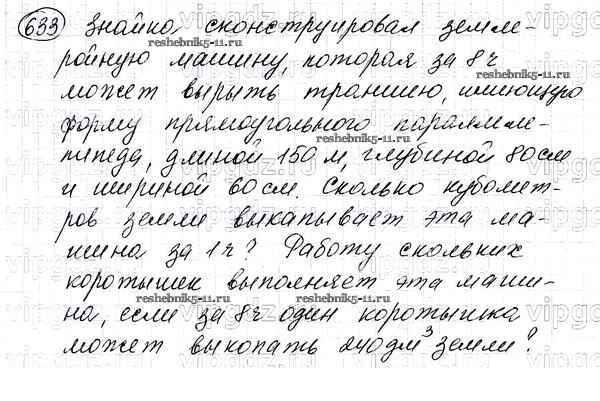 633 Знайка сконструировал земле-
ройную машину, которая за 8 ч
может вырыть траншею, имеющую
форму прямоугольного параллеле-
пипеда, длиной 150 м, глубиной 80 см
и шириной 60 см. Сколько кубомет-
ров земли выкапывает эта ма-
шина за 1 ч? Работу скольких
коротышек выполняет эта маши-
на, если за 8 ч один коротышка
может выкопать 240 дм³ земли?
reshebnik5-11.ru
reshebnik5-11.ru
reshebnik5-11.ru
reshebnik5-11.ru
reshebnik5-11.ru